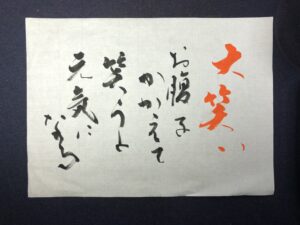 大笑い
お腹を
かかえて
笑うと
元気に
なる